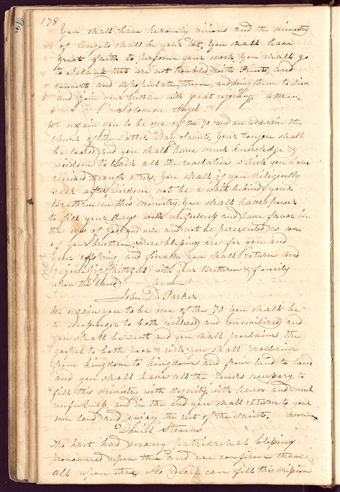 178
You shall have heavenly visions and the ministry
of Angels shall be your lot, you shall have
great faith to perform your work, you shall go
to Islands that are not and
convert and them, and bring them to Zion
and join your brethren with great rejoicing. Amen.
Solomon Angel
We ordain you to be one of the 70 and an Elder in the
church of the Latter Day Saints, your tongue shall
be loosed, and you shall have much knowledge &
wisdom to teach all the revelations which you have
received & many others, you shall if you diligently
seek after wisdom not be a whit behind your
Brethren in this ministry. You shall have power
to fill your days with usefulness and have favor in
the eyes of God and men and not be
of your brethren. These blessings are for you and
your offspring and finally you shall return and
with your Brethren & family
upon this land. Amen
John D. Parker
We ordain you to be one of the 70 you shall be
a messenger to both civilized and uncivilized and
you shall be sent and you shall proclaim the
gospel to both poor & rich you shall
from kingdom to kingdom and from land to land
and you shall have all the power necessary to
fill this ministry with dignity, with honor and much
usefulness and in the end you shall return to your
own land and enjoy the rest of the Saints. Amen
Daniel Stevens
thou hast had many patriarchal blessings
pronounced upon thee and we confirm them
all upon thee. No man can fill this mission